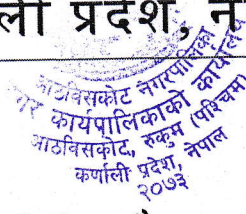 ली प्रदेश, न
आठबिसकोट नगरपालिका
नगर कार्यपालिकाको कार्यालय
आठबिसकोट, रुकुम (पश्चिम)
कर्णाली प्रदेश, नेपाल
२०७३